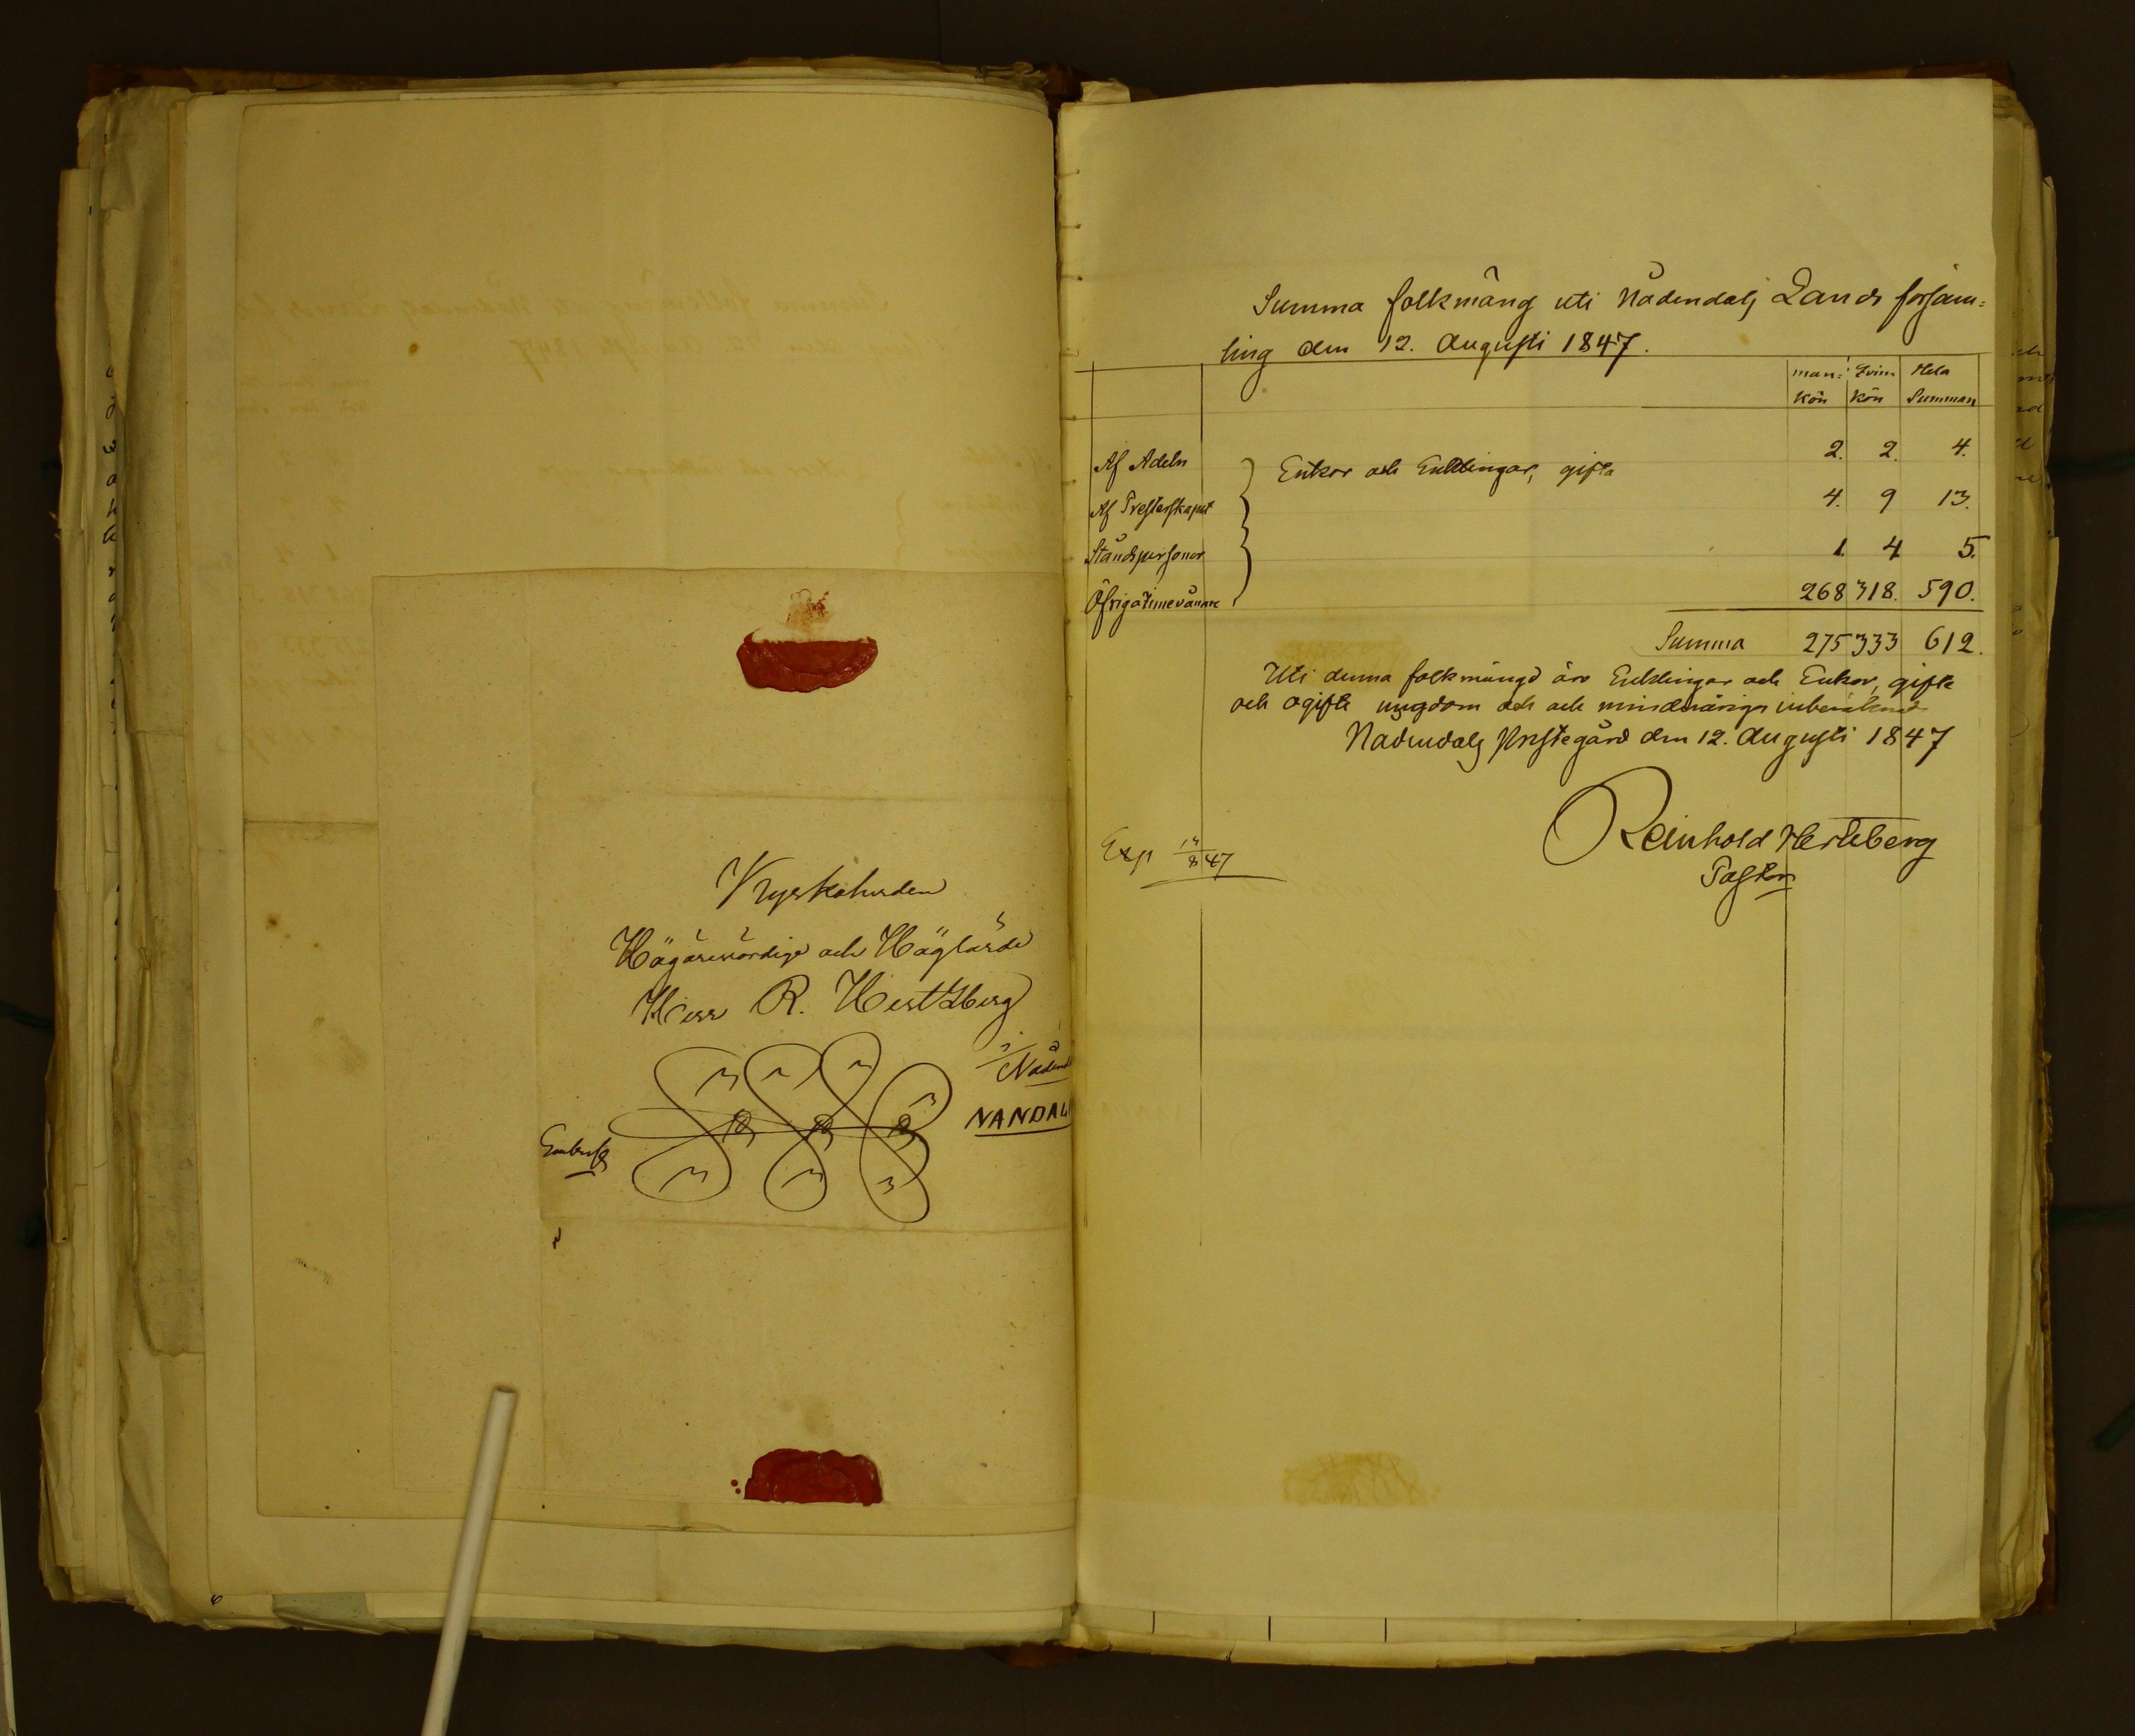 Kyrkoherden
Högärevördige och Höglärde
Herr R. Hertzberg
i/ Nådend
NANDAL
Embetsbr
Summa folkmäng uti Nådendals Lands försam=
ling den 12. Augusti 1847.
man= Qvin Hela
kön kön Summan
Af Adeln Enkor och Enklingar, gifta 2. 2. 4.
Af Presterskapet 4. 9 13.
Ståndspersoner 1. 4 5.
Öfriga Innevånare 268 318. 590.
Summa 275 333 612.
Uti denna folkmängd äro Enklingar och Enkor, gifte
och ogifte ungdom och och minderårige inberäknad
Nådendals Prestegård den 12. Augusti 1847
Reinhold Hertzberg
Pastor
Exp 13/8 47